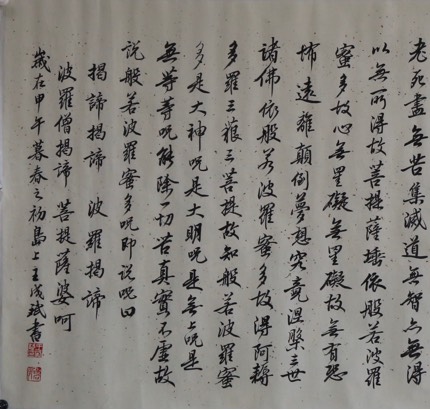 老死盡無苦集滅道無智亦無得
以無所得故菩提薩埵依般若波羅
蜜多故心無罣礙無罣礙故無有恐
怖遠離顛倒夢想究竟涅槃三世
諸佛依般若波羅蜜多故得阿耨
多羅三藐三菩提故知般若波羅蜜
多是大神呪是大明呪是無上呪是
無等等呪能除一切苦真實不虛故
說般若波羅蜜多呪即說呪曰
揭諦揭諦 波羅揭諦
波羅僧揭諦 菩提薩婆呵
歲在甲午暮春之初島上王成斌書